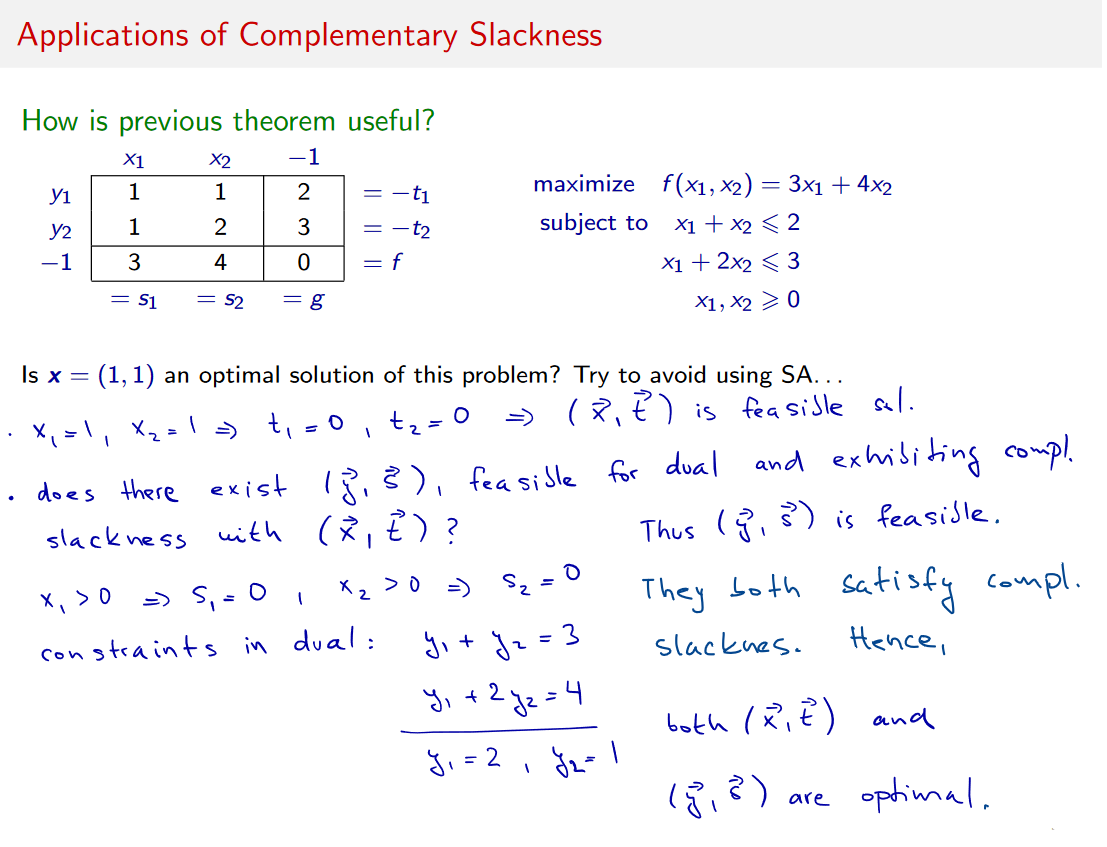 Applications of Complementary Slackness
How is previous theorem useful?
x₁ x₂ −1
y₁ 1 1 2 = −t₁
y₂ 1 2 3 = −t₂
−1 3 4 0 = f
= s₁ = s₂ = g
maximize f(x₁, x₂) = 3x₁ + 4x₂
subject to x₁ + x₂ ⩽ 2
x₁ + 2x₂ ⩽ 3
x₁, x₂ ⩾ 0
Is x = (1, 1) an optimal solution of this problem? Try to avoid using SA...
· x₁=1, x₂=1 ⇒ t₁=0, t₂=0 ⇒ (x⃗, t⃗) is feasible sol.
• does there exist (y⃗, s⃗), feasible for dual and exhibiting compl.
slackness with (x⃗, t⃗)?
x₁>0 ⇒ s₁=0, x₂>0 ⇒ s₂=0
constraints in dual: y₁ + y₂ = 3
y₁ + 2y₂ = 4
y₁ = 2, y₂ = 1
Thus (y⃗, s⃗) is feasible.
They both satisfy compl.
slacknes. Hence,
both (x⃗, t⃗) and
(y⃗, s⃗) are optimal.